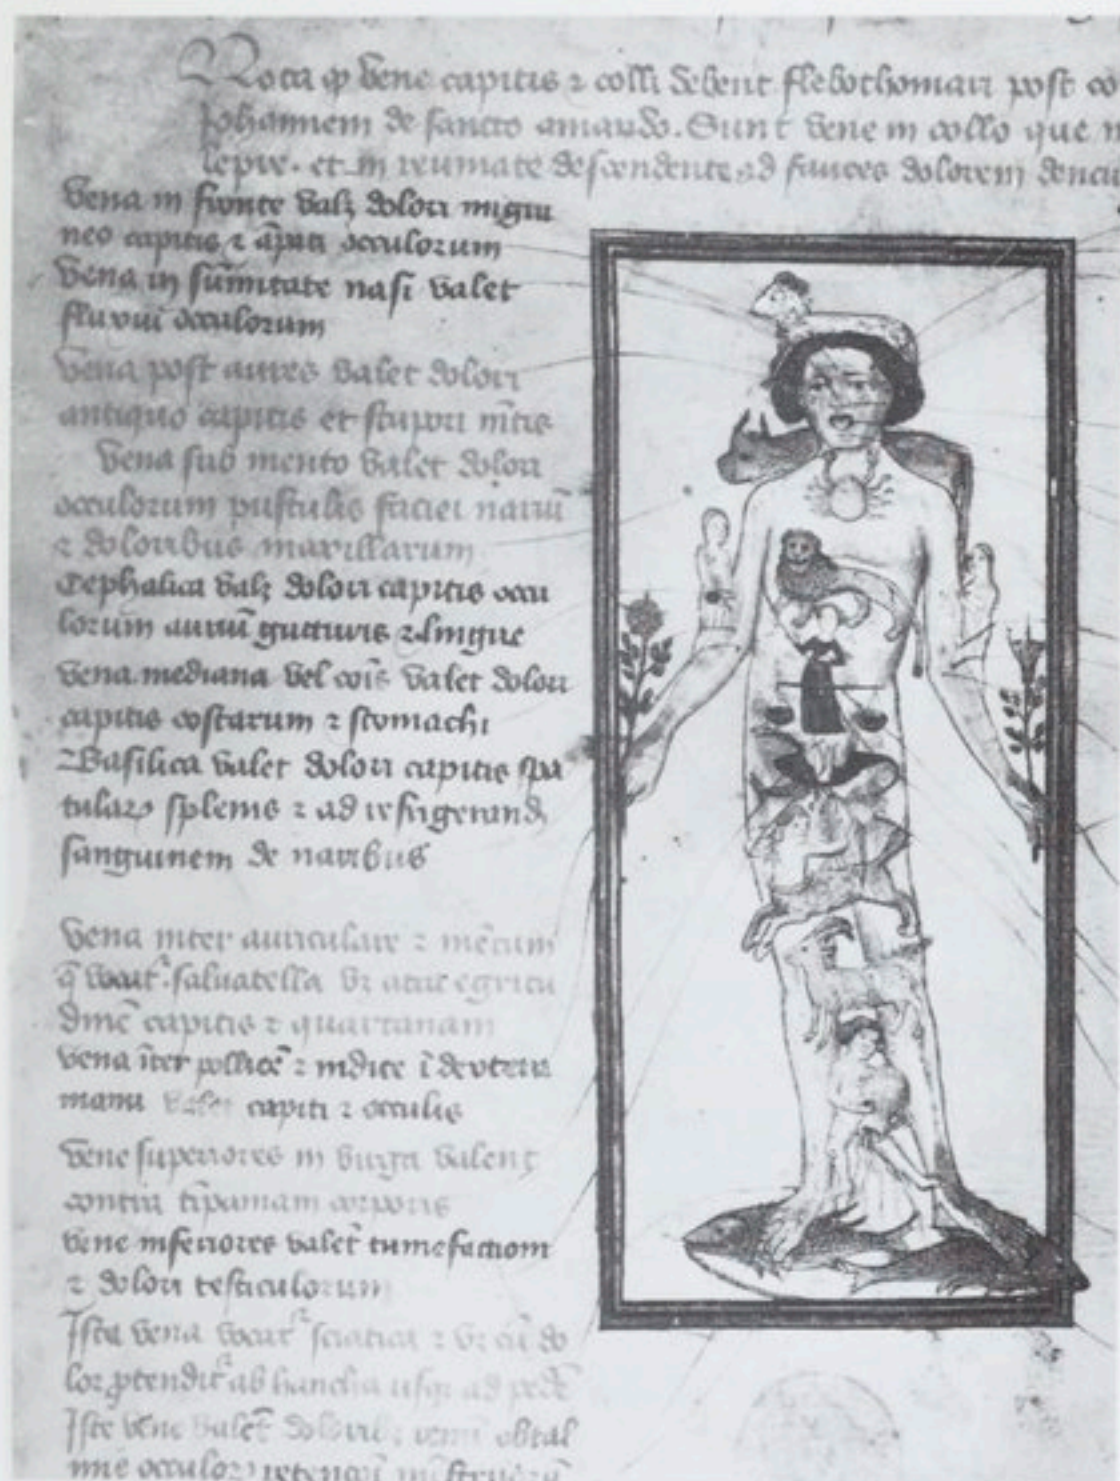 Nota ꝙ vene capitis ⁊ colli debent flebothomari post
Johannem de sancto amando. Sunt vene in collo que
lepre. et in reumate descendente ad fauces dolorem
Vena in fronte valꝫ dolori migra
neo capitis ⁊ occulorum
Vena in summitate nasi valet
fluvui occulorum
Vena post aures valet dolori
antiquo capitis et stupori mētis
Vena sub mento valet dolori
occulorum pustulis faciei nariū
⁊ doloribus maxillarum
Cephalica valꝫ dolori capitis occu
lorum auriū gutturis ⁊ lingue
Vena mediana vel cōis valet dolori
capitis costarum ⁊ stomachi
Basilica valet dolori capitis spa
tularꝝ splenis ⁊ ad refrigerandꝫ
sanguinem de naribus
Vena inter auricularē ⁊ mēcum
q̄ vocat᷑ salvatella egritu
dinē capitis ⁊ quartanam
Vena īter pollicē ⁊ indicē ī dextera
manu valet capiti ⁊ occulis
Vene superiores in virga valent
contra tīpaniam corporis
Vene inferiores valēt tumefactiom
⁊ dolori testiculorum
Ista vena vocat᷑ sciatica ⁊ cū do
lor ꝓtendit᷑ ab hancha usqꝫ ad pedē
Iste vene valēt obtal
mie occuloꝝ